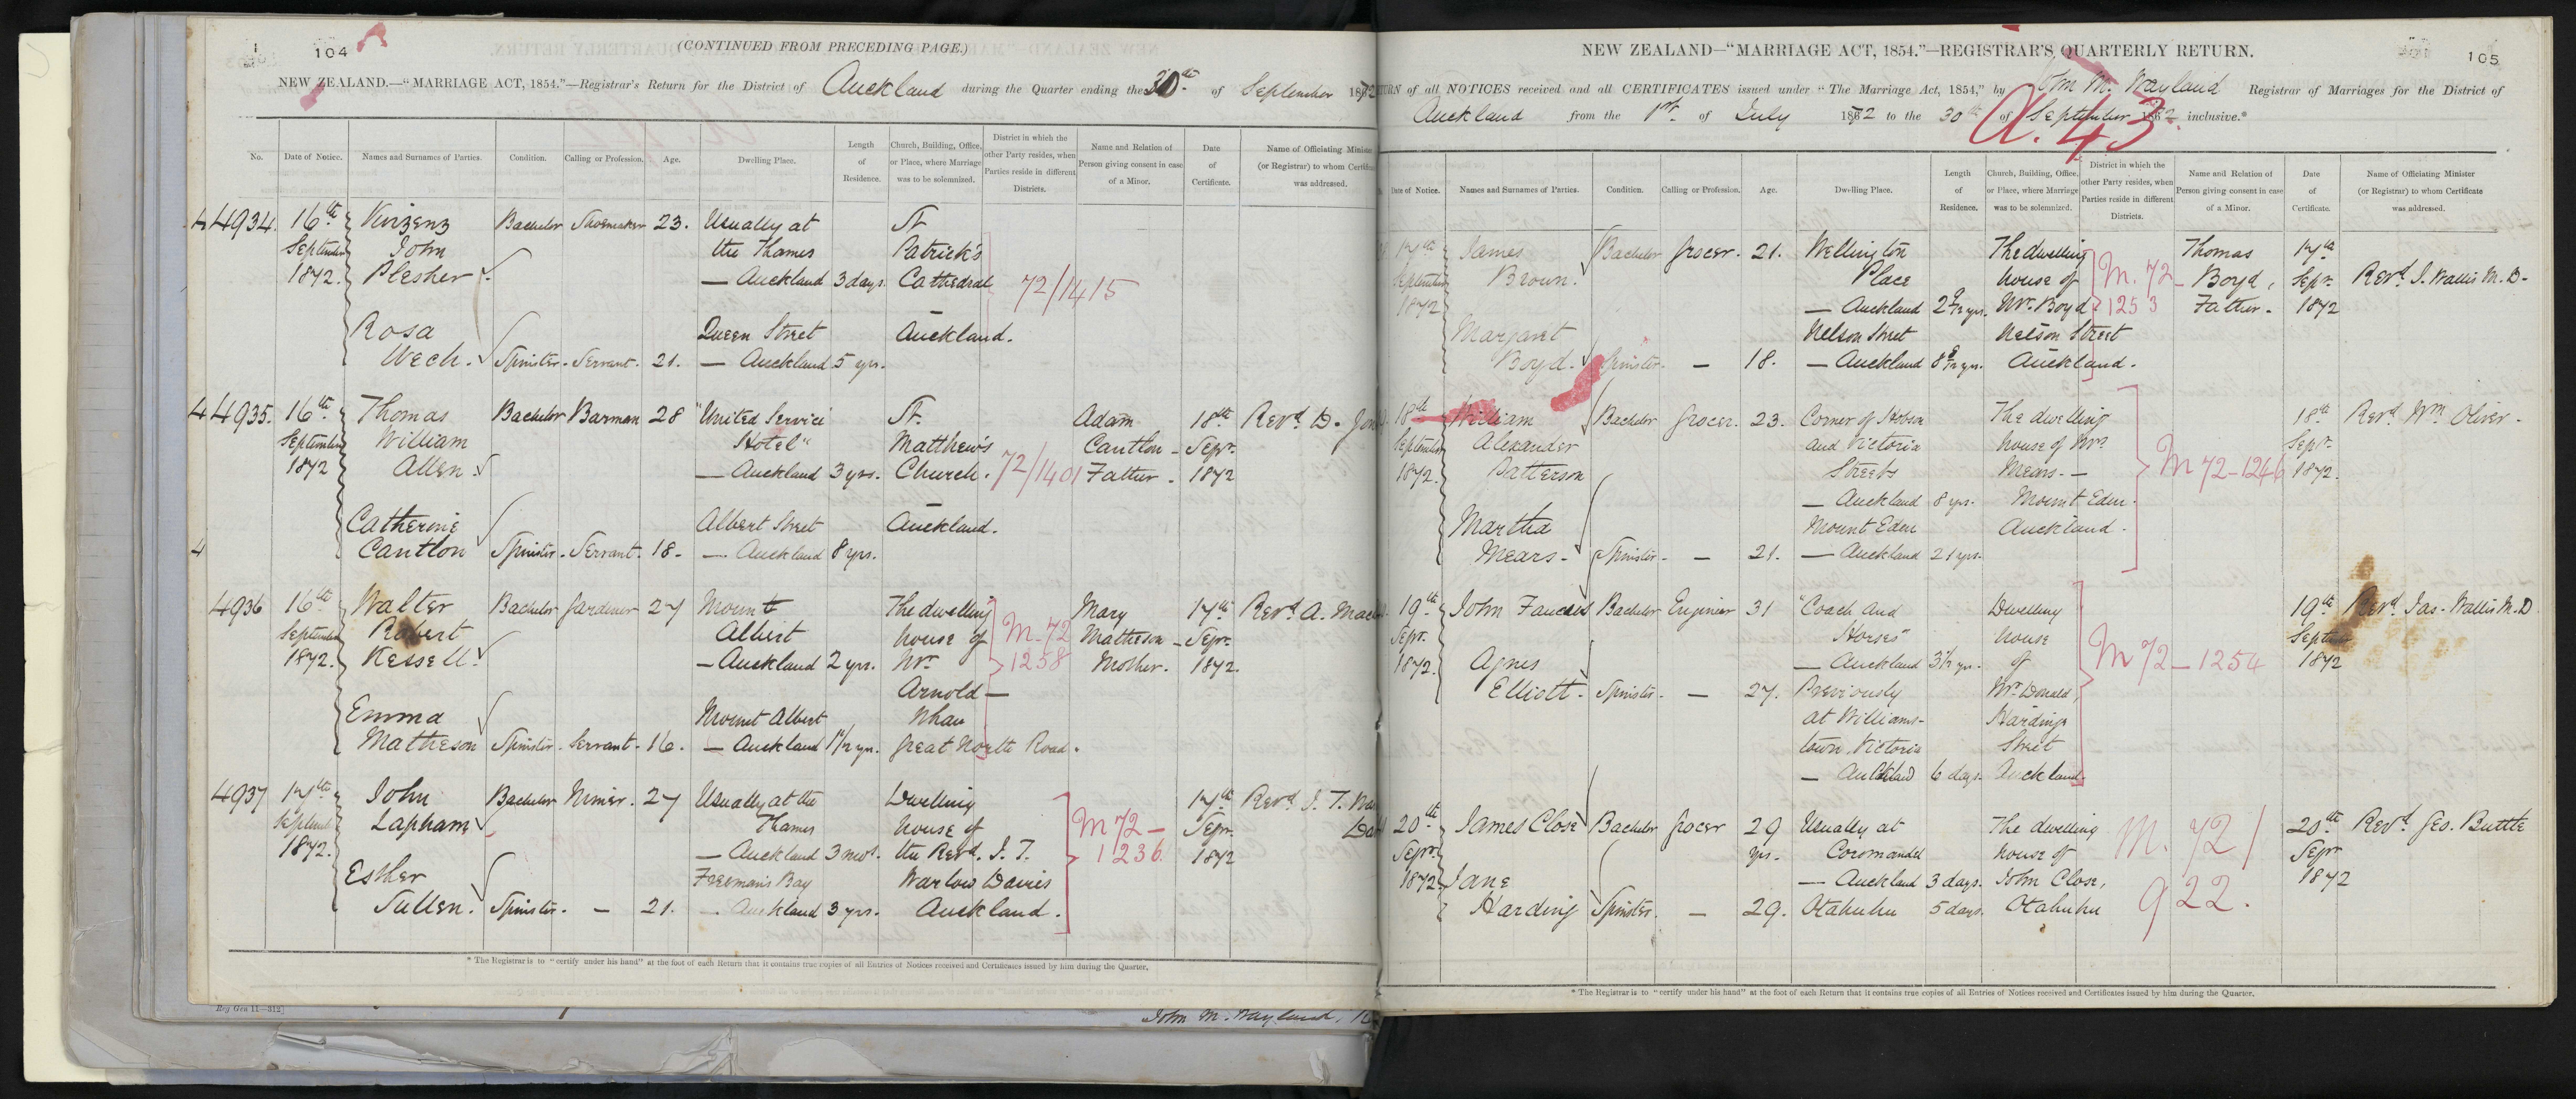 104
(CONTINUED FROM PRECEDING PAGE.)
NEW ZEALAND.—"MARRIAGE ACT, 1854."—Registrar's Return for the District of Auckland during the Quarter ending the 30th of September 1872
No. Date of Notice. Names and Surnames of Parties. Condition. Calling or Profession. Age. Dwelling Place. Length of Residence. Church, Building, Office, or Place, where Marriage was to be solemnized. District in which the other Party resides, when Parties reside in different Districts. Name and Relation of Person giving consent in case of a Minor. Date of Certificate. Name of Officiating Minister (or Registrar) to whom Certificate was addressed.
4 4934. 16th Vinzenz Bachelor Shoemaker 23. Usually at St
September John the Thames Patrick's
1872. Plesher — Auckland 3 days. Cathedral 72/1415
Rosa Queen Street Auckland.
Wech. Spinster. Servant. 21. — Auckland 5 yrs.
4 4935. 16th Thomas Bachelor Barman 28 "United Service St. Adam 18th Revd. D. Jon
September William Hotel" Matthew's Cantlon Sepr.
1872 Allen — Auckland 3 yrs. Church. 72/1401 Father. 1872
Catherine Albert Street Auckland.
4 Cantlon Spinster. Servant. 18. — Auckland 8 yrs.
4936 16th Walter Bachelor Gardener 27 Mount The dwelling M. 72 Mary 17th Revd. A. Mac
September Robert Albert house of 1258 Matheson Sepr.
1872. Kessell — Auckland 2 yrs. Mr. Mother. 1872.
Arnold —
Emma Mount Albert Whau
Matheson Spinster. Servant. 16. — Auckland 1 1/2 yr. Great North Road.
4937 17th John Bachelor Miner. 27 Usually at the Dwelling 17th Revd. J. T. War
September Lapham Thames house of M 72 — Sepr.
1872. — Auckland 3 mos. the Revd. J. T. 1236 1872
Esther Freeman's Bay Warlow Davies
Sullen. Spinster. — 21. — Auckland 3 yrs. Auckland.
* The Registrar is to "certify under his hand" at the foot of each Return that it contains true copies of all Entries of Notices received and Certificates issued by him during the Quarter.
Reg Gen 11—312]
John M. Wayland,
NEW ZEALAND—"MARRIAGE ACT, 1854."—REGISTRAR'S QUARTERLY RETURN.
105
TURN of all NOTICES received and all CERTIFICATES issued under "The Marriage Act, 1854," by John M. Wayland Registrar of Marriages for the District of
Auckland from the 1st. of July 1872 to the 30th of September 1872 inclusive.*
A. 43.
Date of Notice. Names and Surnames of Parties. Condition. Calling or Profession. Age. Dwelling Place. Length of Residence. Church, Building, Office, or Place, where Marriage was to be solemnized. District in which the other Party resides, when Parties reside in different Districts. Name and Relation of Person giving consent in case of a Minor. Date of Certificate. Name of Officiating Minister (or Registrar) to whom Certificate was addressed.
17th James Bachelor Grocer. 21. Wellington The dwelling Thomas 17th
September Brown. Place house of M. 72 — Boyd, Sepr. Revd. J. Wallis M. D.
1872 — Auckland 2 yrs. Mr. Boyd 1253 Father. 1872
Margaret Nelson Street Nelson Street
Boyd. Spinster. — 18. — Auckland 8 yrs. Auckland.
18th William Bachelor Grocer. 23. Corner of Hobson The dwelling 18th Revd. Wm. Oliver.
September Alexander and Victoria house of Mrs. Sepr.
1872. Patterson Streets Mears. — M 72 — 1246 1872.
— Auckland 8 yrs. Mount Eden.
Martha Mount Eden Auckland.
Mears. Spinster. — 21. — Auckland 21 yrs.
19th John Bachelor Engineer 31 "Coach and Dwelling 19th Revd. Jas. Wallis M. D
Sepr. Horses" house September
1872. Agnes — Auckland 3 1/2 yr. of M 72 — 1254 1872
Elliott. Spinster. — 27. Previously Mr. Donald,
at Williams- Hardinge
town Victoria Street
— Auckland 6 days. Auckland.
20th James Close Bachelor Grocer 29 Usually at The dwelling M. 72/ 20th Revd. Geo. Buttle
Sepr. yrs. Coromandel house of Sepr
1872 Jane — Auckland 3 days. John Close, 1872
Harding Spinster. — 29. Otahuhu 5 days. Otahuhu 922.
* The Registrar is to "certify under his hand" at the foot of each Return that it contains true copies of all Entries of Notices received and Certificates issued by him during the Quarter.